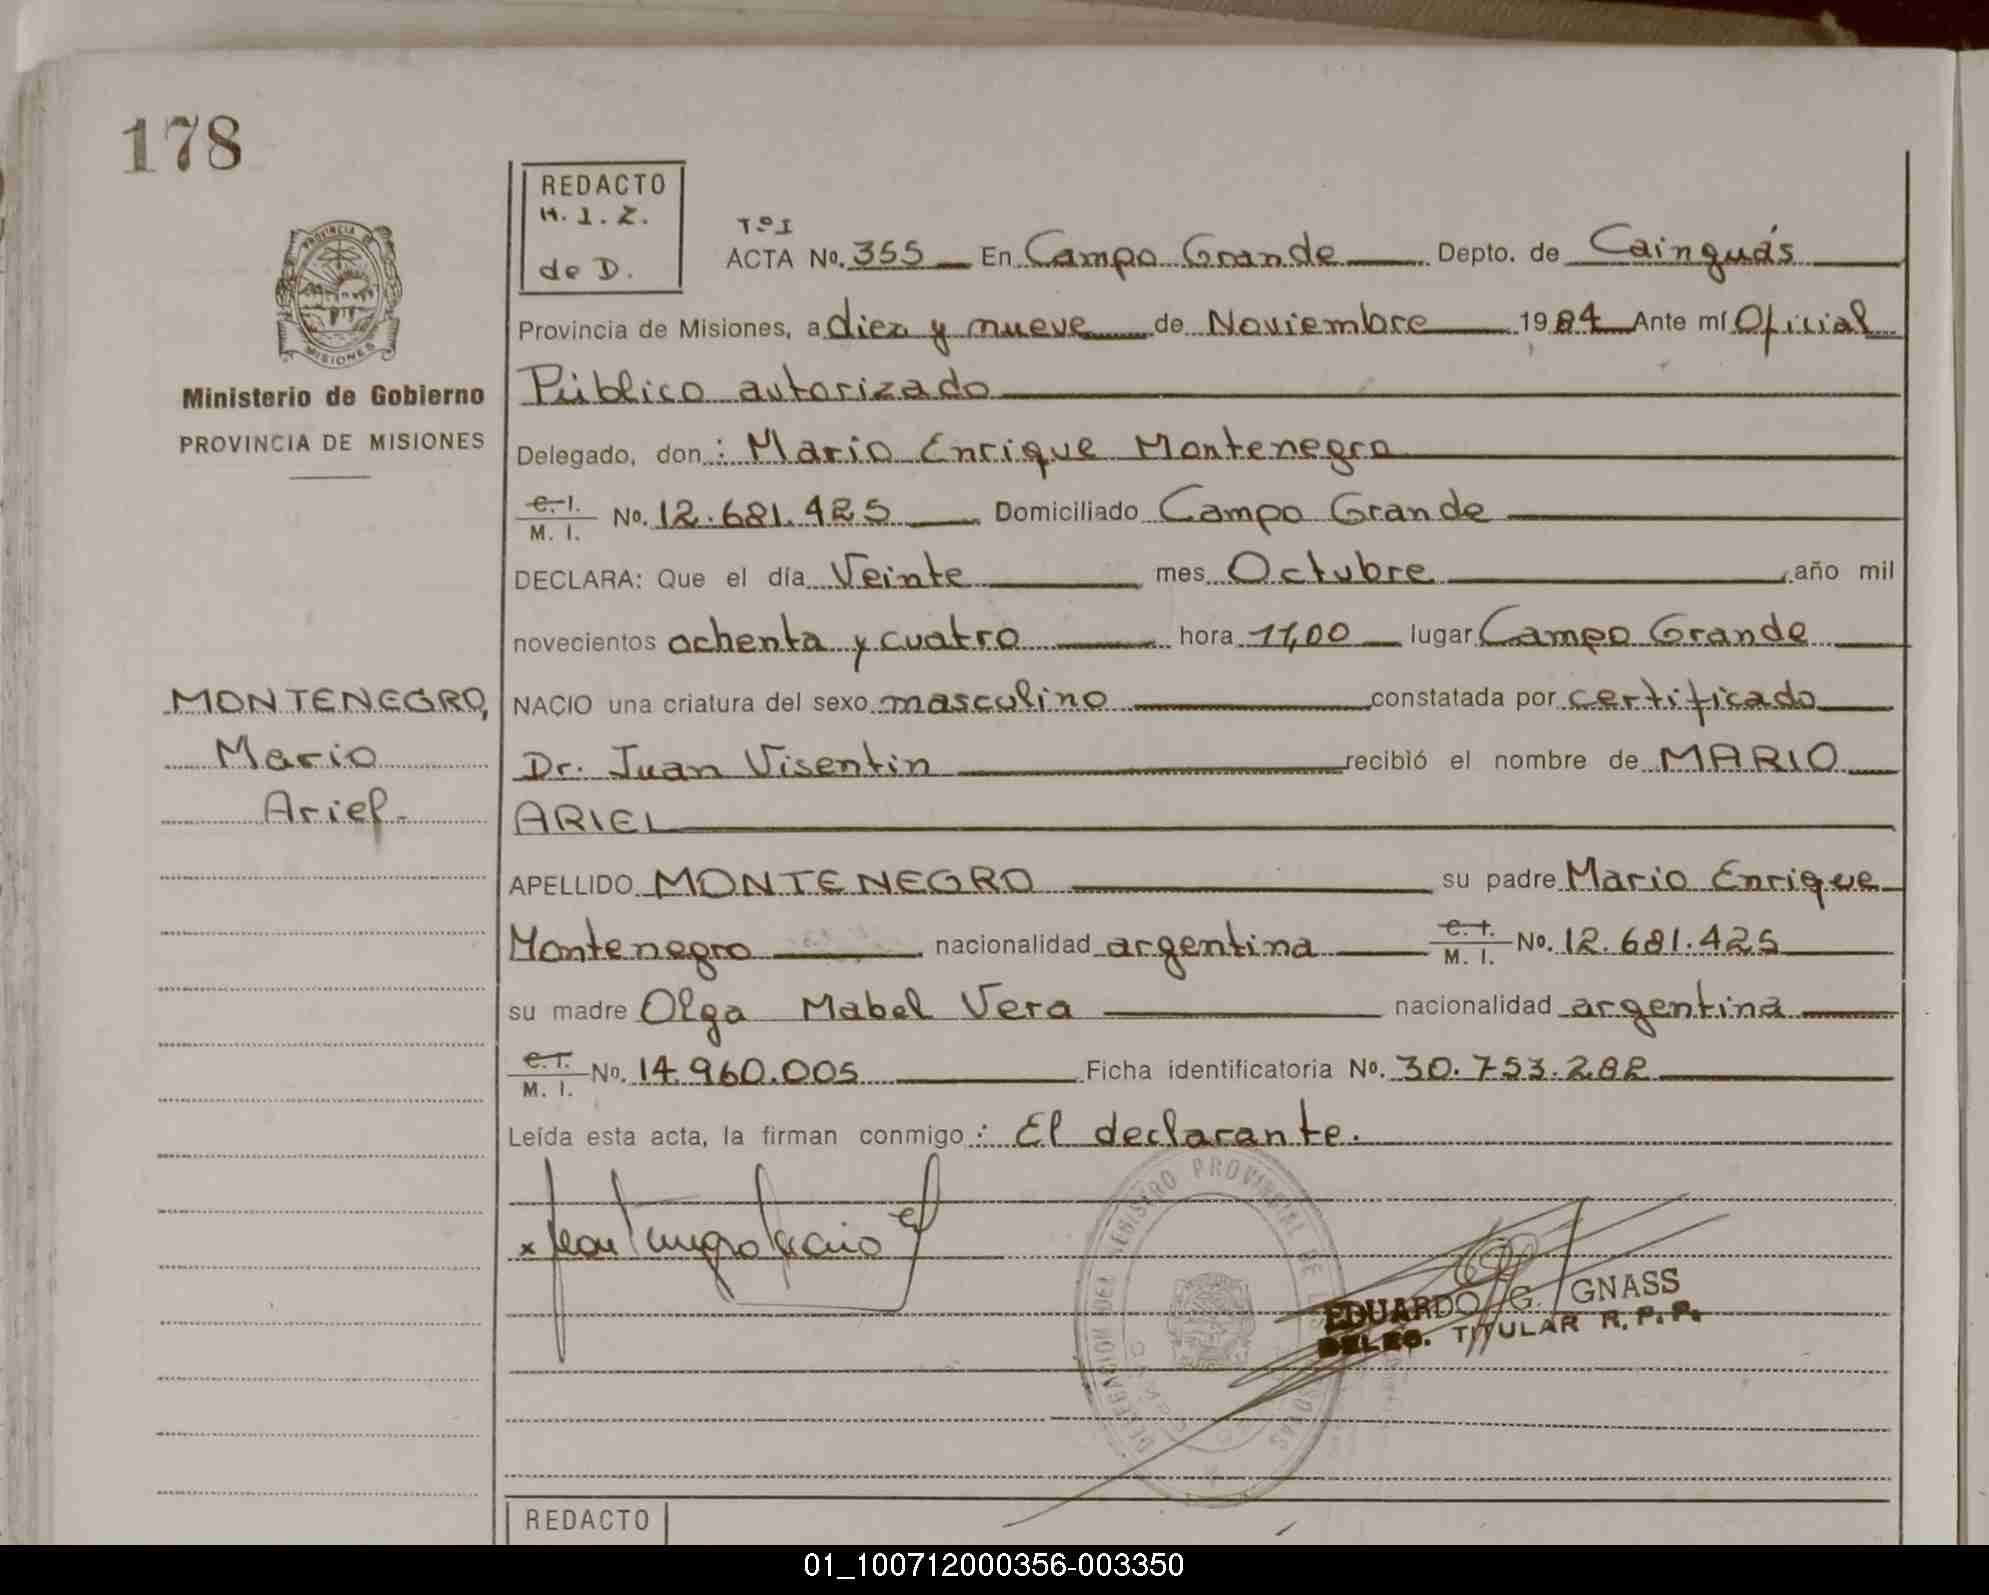 178
PROVINCIA DE
MISIONES
Ministerio de Gobierno
PROVINCIA DE MISIONES
MONTENEGRO,
Mario
Ariel-
REDACTO
H. I. Z.
de D.
Tº I
ACTA No. 355 En Campo Grande Depto. de Cainguás
Provincia de Misiones, a diez y nueve de Noviembre 1984 Ante mí Oficial
Público autorizado
Delegado, don: Mario Enrique Montenegro
C. I. / M. I. No. 12.681.425 Domiciliado Campo Grande
DECLARA: Que el día Veinte mes Octubre, año mil
novecientos ochenta y cuatro hora 11,00 lugar Campo Grande
NACIO una criatura del sexo masculino constatada por certificado
Dr. Juan Visentin recibió el nombre de MARIO
ARIEL
APELLIDO MONTENEGRO su padre Mario Enrique
Montenegro nacionalidad argentina C. I. / M. I. No. 12.681.425
su madre Olga Mabel Vera nacionalidad argentina
C. I. / M. I. No. 14.960.005 Ficha identificatoria No. 30.753.282
Leída esta acta, la firman conmigo: El declarante.
DELEGACION DEL REGISTRO PROVINCIAL DE LAS PERSONAS
EDUARDO G. GNASS
DELEG. TITULAR R. P. P.
REDACTO
01_100712000356-003350